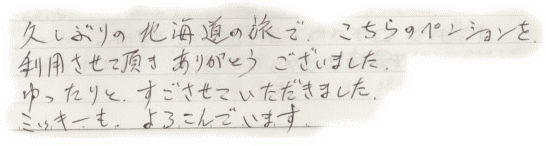 久しぶりの北海道の旅で、こちらのペンションを、
利用させて頂きありがとうございました。
ゆったりと、すごさせていただきました。
ミッキーも、よろこんでいます。